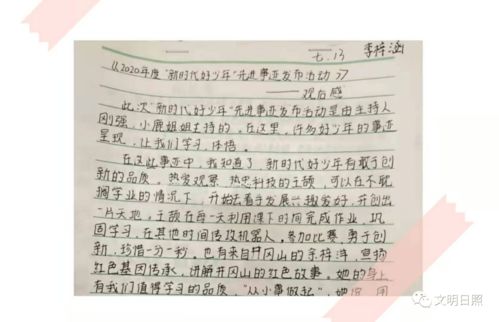 七.13 李梓涵
《2020年度"新时代好少年"先进事迹发布活动》
——观后感
此次"新时代好少年"先进事迹发布活动是由主持人
刚强,小鹿姐姐主持的。在这里,许多好少年的事迹
呈现,让我们学习,体悟。
在这些事迹中,我知道了,新时代好少年有敢于创
新的品质。热爱观察,热忠科技的王硕,可以在不耽
搁学业的情况下,开始去着手发展兴趣爱好,开创出
一片天地,王硕在每一天利用课下时间完成作业,巩
固学习,在其他时间专攻机器人,参加比赛,勇于创
新,珍惜一分一秒。也有来自井冈山的余梓洋,宣扬
红色基因传承,讲解井冈山的红色故事。她的身上
有我们值得学习的品质,"从小事做起",她
文明日照